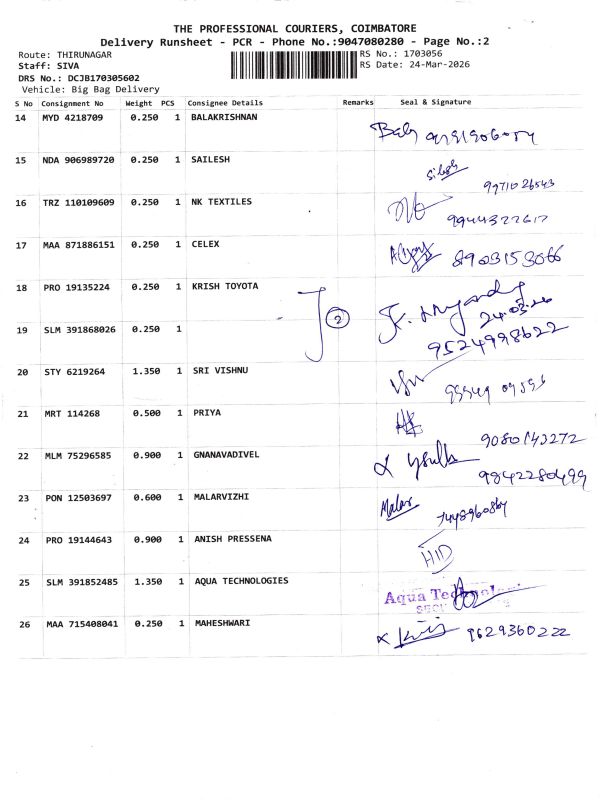 THE PROFESSIONAL COURIERS, COIMBATORE
Delivery Runsheet - PCR - Phone No.:9047080280 - Page No.:2
Route: THIRUNAGAR
Staff: SIVA
DRS No.: DCJB170305602
Vehicle: Big Bag Delivery
RS No.: 1703056
RS Date: 24-Mar-2026
S No Consignment No Weight PCS Consignee Details Remarks Seal & Signature
14 MYD 4218709 0.250 1 BALAKRISHNAN
15 NDA 906989720 0.250 1 SAILESH
9971026543
16 TRZ 110109609 0.250 1 NK TEXTILES
9944322617
17 MAA 871886151 0.250 1 CELEX
8903153066
18 PRO 19135224 0.250 1 KRISH TOYOTA
24.03.26
2
19 SLM 391868026 0.250 1
9524998622
20 STY 6219264 1.350 1 SRI VISHNU
21 MRT 114268 0.500 1 PRIYA
9080143272
22 MLM 75296585 0.900 1 GNANAVADIVEL
9842280499
23 PON 12503697 0.600 1 MALARVIZHI
Malar
24 PRO 19144643 0.900 1 ANISH PRESSENA
25 SLM 391852485 1.350 1 AQUA TECHNOLOGIES
Aqua
26 MAA 715408041 0.250 1 MAHESHWARI
9629360222